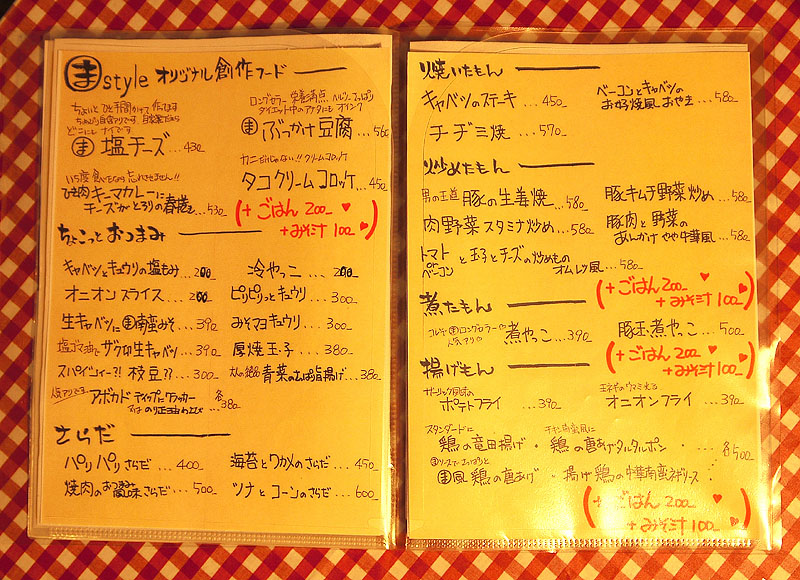 ま style オリジナル創作フード
ちょいとひと手間かけて作ってます
どこにもナイです
ま 塩チーズ...430
ロングセラー 栄養満点 ヘルシーでっぱり
ダイエット中のアナタにもオススメ
ま ぶっかけ豆腐...560
カニだけじゃない!! クリームコロッケ
タコクリームコロッケ...450
いち度食べたなら忘れさせません!!
ひき肉キーマカレーに
チーズがとろりの春捲き...530
(+ごはん200
+みそ汁100)
ちょこっとおつまみ
キャベツとキュウリの塩もみ...200
冷やっこ...200
オニオンスライス...200
ピリピリっとキュウリ...300
生キャベツにま南蛮みそ...390
みそマヨキュウリ...300
塩ゴマ油でザク切生キャベツ...390
厚焼玉子...380
スパイシィー?! 枝豆??...300
青菜のにんにく旨揚げ...380
人気アリです アボカドディップでクラッカー
又はのり正油わさび 各380
さらだ
パリパリさらだ...400
海苔とワカメのさらだ...450
焼肉のお醤味さらだ...500
ツナとコーンのさらだ...600
焼いたもん
キャベツのステーキ...450
ベーコンとキャベツの
お好焼風おやき...580
チヂミ焼...570
炒めたもん
男の王道 豚の生姜焼...580
豚キムチ野菜炒め...580
肉野菜スタミナ炒め...580
豚肉と野菜の
あんかけやや中華風...580
トマト
ベーコン と玉子とチーズの炒めもの
オムレツ風...580
(+ごはん200
+みそ汁100)
煮たもん
煮やっこ...390
豚玉煮やっこ...500
(+ごはん200
+みそ汁100)
揚げもん
ガーリック風味の
ポテトフライ...390
玉ネギのウマミ光る
オニオンフライ...390
スタンダードに
鶏の竜田揚げ・
チキン南蛮風に
鶏の唐あげタルタルポン・...各500
ま風 鶏の唐あげ・揚げ鶏の中華南蛮ネギソース
(+ごはん200
+みそ汁100)